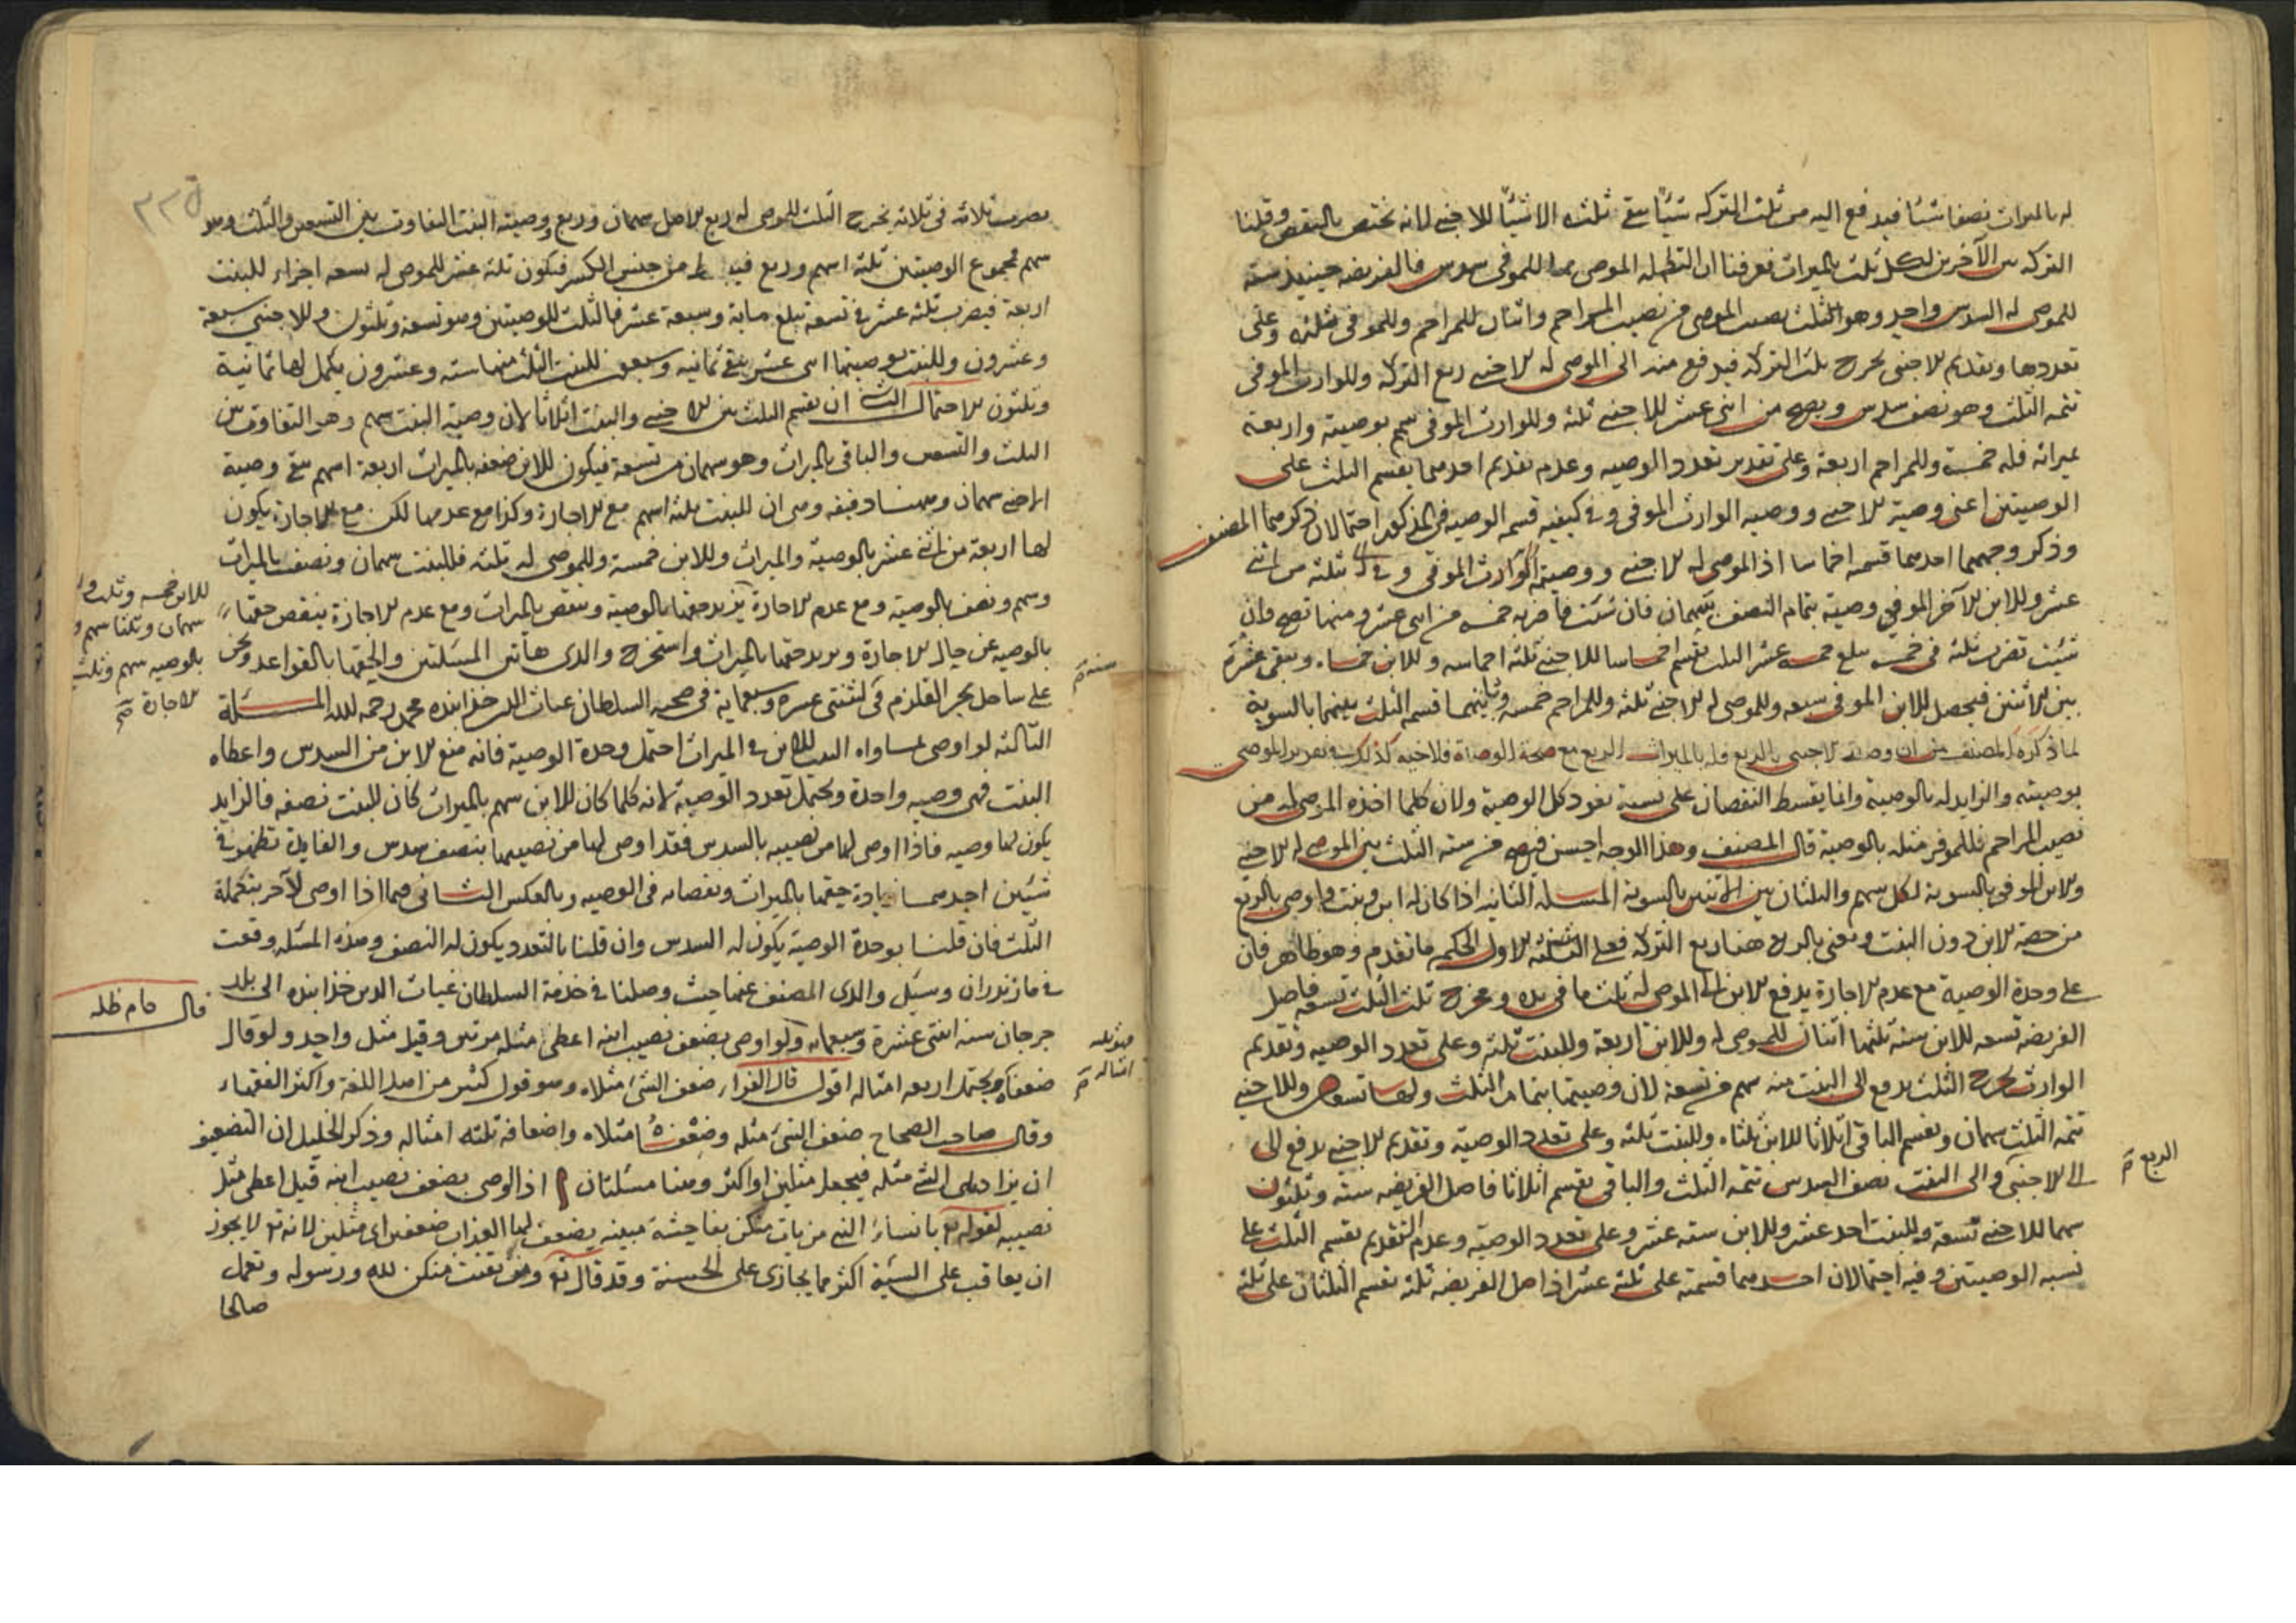 له بالميراث نصفا شيئا فيدفع اليه من ثلث التركة شيئا يبقى ثلثه الا شيئا للاجنبي لانه يختص بالنقص وقلنا
التركة بين الآخرين لكل ثلث بالميراث فعرفنا ان الموصى للموفى سدس فالفريضه حينئذ ستة
للموصى له السدس واحد وهو الثلث نصيب الموصى من نصيب المزاحم واثنان للمزاحم وللموفى ثلثه وعلى
تعددها وتقديم الاجنبى يخرج ثلث التركة فيدفع منه الى الموصى له الاجنبى ربع التركة وللوارث الموفى
تتمه الثلث وهو نصف سدس ويصح من اثنى عشر للاجنبى ثلثه وللوارث الموفى سهم بوصيته واربعة
بميراثه فله خمسة وللمزاحم اربعة وعلى تقدير تعدد الوصيه وعدم تقديم احدهما يقسم الثلث على
الوصيتين اعنى وصية الاجنبى ووصيه الوارث الموفى وفى كيفيه قسمه الوصيه فى المذكور احتمالان ذكرهما المصنف
وذكر وجههما احدهما قسمه اخماسا اذ الموصى له الاجنبى ووصيته الوارث الموفى ثلثه من اثنى
عشر وللابن الآخر الموفى وصية بتمام النصف بسهمان فان شئت فاضربه خمسه فى اثنى عشر ومنها تصح وان
شئت تضرب ثلثه فى خمسه يبلغ خمسه عشر الثلث يقسم اخماسا للاجنبى ثلثة اخماسه وللابن خمساه ويبقى عشرة
بين الاثنين فيحصل للابن الموفى سبعه وللموصى له الاجنبى ثلثه وللمزاحم خمسه وثانيهما قسمه الثلث بينهما بالسوية
لما ذكره المصنف من ان وصية الاجنبى بالربع وله بالميراث الربع مع صحة الوصية فلاخيه كذلك
بوصيته والزايد له بالوصية وانما يقسط النقصان على نسبة نفوذ كل الوصية ولان كلما اخذه الموصى له من
نصيب المزاحم فللموفر مثله بالوصية قال المصنف وهذا الوجه احسن فيصح من سته الثلث بين الموصى له الاجنبى
والابن الموفى بالسوية لكل سهم والثلثان بين الاثنين بالسوية المسئلة الثانيه اذا كان له ابن وبنت واوصى بالربع
من حصه الابن دون البنت ونعنى بالربع هنا ربع التركة فعلى الاول الحكم ما تقدم وهو ظاهر فان
على وحدة الوصية مع عدم الاجازة يدفع الابن الى الموصى له ثلث ما فى يده ومخرج ثلث الثلث تسعه فاصل
الفريضه تسعه للابن ستة ثلثها اثنان للموصى له وللابن اربعة وللبنت ثلثه وعلى تعدد الوصيه وتقديم
الوارث يخرج الثلث يدفع الى البنت منه سهم من تسعة لان وصيتها بتمام الثلث ولها تسعان وللاجنبى
تتمه الثلث سهمان ويقسم الباقى اثلاثا للابن ثلثاه وللبنت ثلثه وعلى تعدد الوصية وتقديم الاجنبى يدفع الى
الربع صح
الى الاجنبى والى البنت نصف السدس تتمه الثلث والباقى يقسم اثلاثا فاصل الفريضه ستة وثلثون
سهما للاجنبى تسعة وللبنت احد عشر وللابن سته عشر وعلى تعدد الوصيه وعدم التقديم يقسم الثلث على
نسبه الوصيتين وفيه احتمالان احدهما قسمته على ثلثة عشر اذ اصل الفريضه ثلثة تقسم الثلثان على ثلثة
يضرب ثلاثه فى ثلاثه يخرج الثلث للموصى له ربع الاصل سهمان وربع ووصية البنت التفاوت بين التسعين والثلث وهو
سهم فمجموع الوصيتين ثلثة اسهم وربع فيبسط من جنس الكسر فيكون ثلثة عشر للموصى له تسعه اجزاء للبنت
اربعة فيضرب ثلثه عشر فى تسعه تبلغ ماية وسبعة عشر فالثلث للوصيتين وهو تسعه وثلثون وللاجنبى سبعة
وعشرون وللبنت بوصيتها اثنى عشر يبقى ثمانيه وسبعون للبنت الثلث منها ستة وعشرون يكمل لها ثمانية
وثلثون الاحتمال الثانى ان يقسم الثلث بين الاجنبى والبنت اثلاثا لان وصية البنت سهم وهو التفاوت بين
الثلث والتسعين والباقى بالميراث وهو سهمان من تسعة فيكون للابن ضعفه بالميراث اربعة اسهم يبقى وصية
الاجنبى سهمان وههنا دقيقه وهى ان للبنت ثلثة اسهم مع الاجازة وكذا مع عدمها لكن مع الاجازة يكون
لها اربعة من اثنى عشر بالوصية والميراث وللابن خمسة وللموصى له ثلثه فللبنت سهمان ونصف بالميراث
وسهم ونصف بالوصية ومع عدم الاجازة يزيد حقها بالوصية وينقص بالميراث ومع عدم الاجازة ينقص حقها
للابن خمسه وثلث
سهمان وثلثا سهم
بالوصيه سهم وثلث
الاجازة صح
بالوصيه عن حال الاجازة ويزيد حقها بالميراث واستخرج والدى هاتين المسئلتين والحقها بالقواعد ونحن
سنة صح
على ساحل بحر القلزم فى اثنتى عشره وسبعماية فى صحبة السلطان غياث الدين خذابنده محمد رحمه الله المسئلة
الثالثه لو اوصى بمساواه البنت للابن فى الميراث احتمل وحدة الوصية فانه منع الابن من السدس واعطاه
البنت فهى وصيه واحدة ويحتمل تعدد الوصية لانه كلما كان للابن سهم بالميراث كان للبنت نصفه فالزايد
يكون لها وصيه فاذا اوصى لها من نصيبه بالسدس فقد اوصى لها من نصيبها بنصف سدس والفايدة تظهر فى
شيئين احدهما زيادة حقها بالميراث ونقصانه فى الوصيه وبالعكس الثانى فيما اذا اوصى لآخر بتكملة
الثلث فان قلنا بوحدة الوصية يكون له السدس وان قلنا بالتعدد يكون له النصف وهذه المسئله وقعت
فى مازندران وسئل والدى المصنف عنها حيث وصلنا فى خدمة السلطان غياث الدين خذابنده الى بلد
قال دام ظله
جرجان سنه اثنتى عشرة وسبعمايه ولو اوصى بضعف نصيب ابنه اعطى مثله مرتين وقيل مثل واحد ولو قال
ضعفاه ويحتمل اربعه امثاله اقول قال الفراء ضعف الشئ مثلاه وهو قول كثير من اصل اللغة واكثر الفقهاء
امثاله صح
وقال صاحب الصحاح ضعف الشئ مثله وضعفاه مثلاه واضعافه ثلثه امثاله وذكر الخليل ان التضعيف
ان يزاد على الشئ مثله فيجعل مثلين او اكثر وهنا مسئلتان ا اذا اوصى بضعف نصيب ابنه قيل اعطى مثل
نصيبه لقوله تع يا نساء النبى من يات منكن بفاحشة مبينه يضعف لها العذاب ضعفين اى مثلين لانه تع لا يجوز
ان يعاقب على السيئة اكثر مما يجازى على الحسنة وقد قال تع ومن يقنت منكن لله ورسوله وتعمل
صالحا